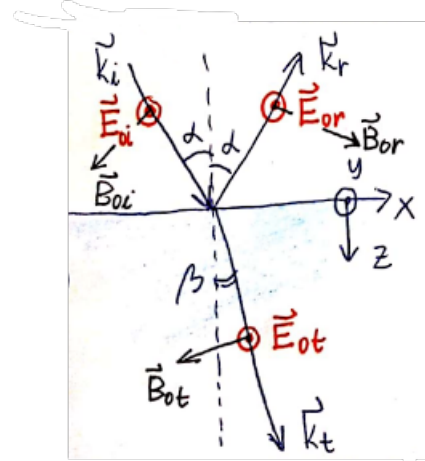 k⃗i k⃗r
E⃗oi α α E⃗or
B⃗oi B⃗or
y
x
z
β
E⃗ot
B⃗ot
k⃗t